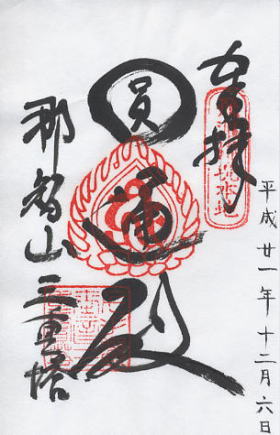 奉拝
平成廿一年十二月六日
圓通殿
那智山三重塔